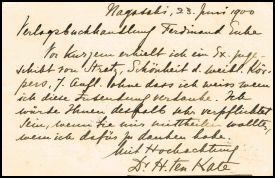 Nagasaki, 23. Juni 1900
Verlagsbuchhandlung Ferdinand Enke
Vor Kurzem erhielt ich ein Ex. zuge-
schickt von Stratz, Schönheit d. weibl. Kör-
pers, 7. Aufl. ohne dass ich weiss wem
ich diese Zusendung verdanke. Ich
würde Ihnen desshalb sehr verpflichtet
sein, wenn Sie mir mittheilen wollten,
wem ich dafür zu danken habe.
Mit Hochachtung
Dr. H. ten Kate